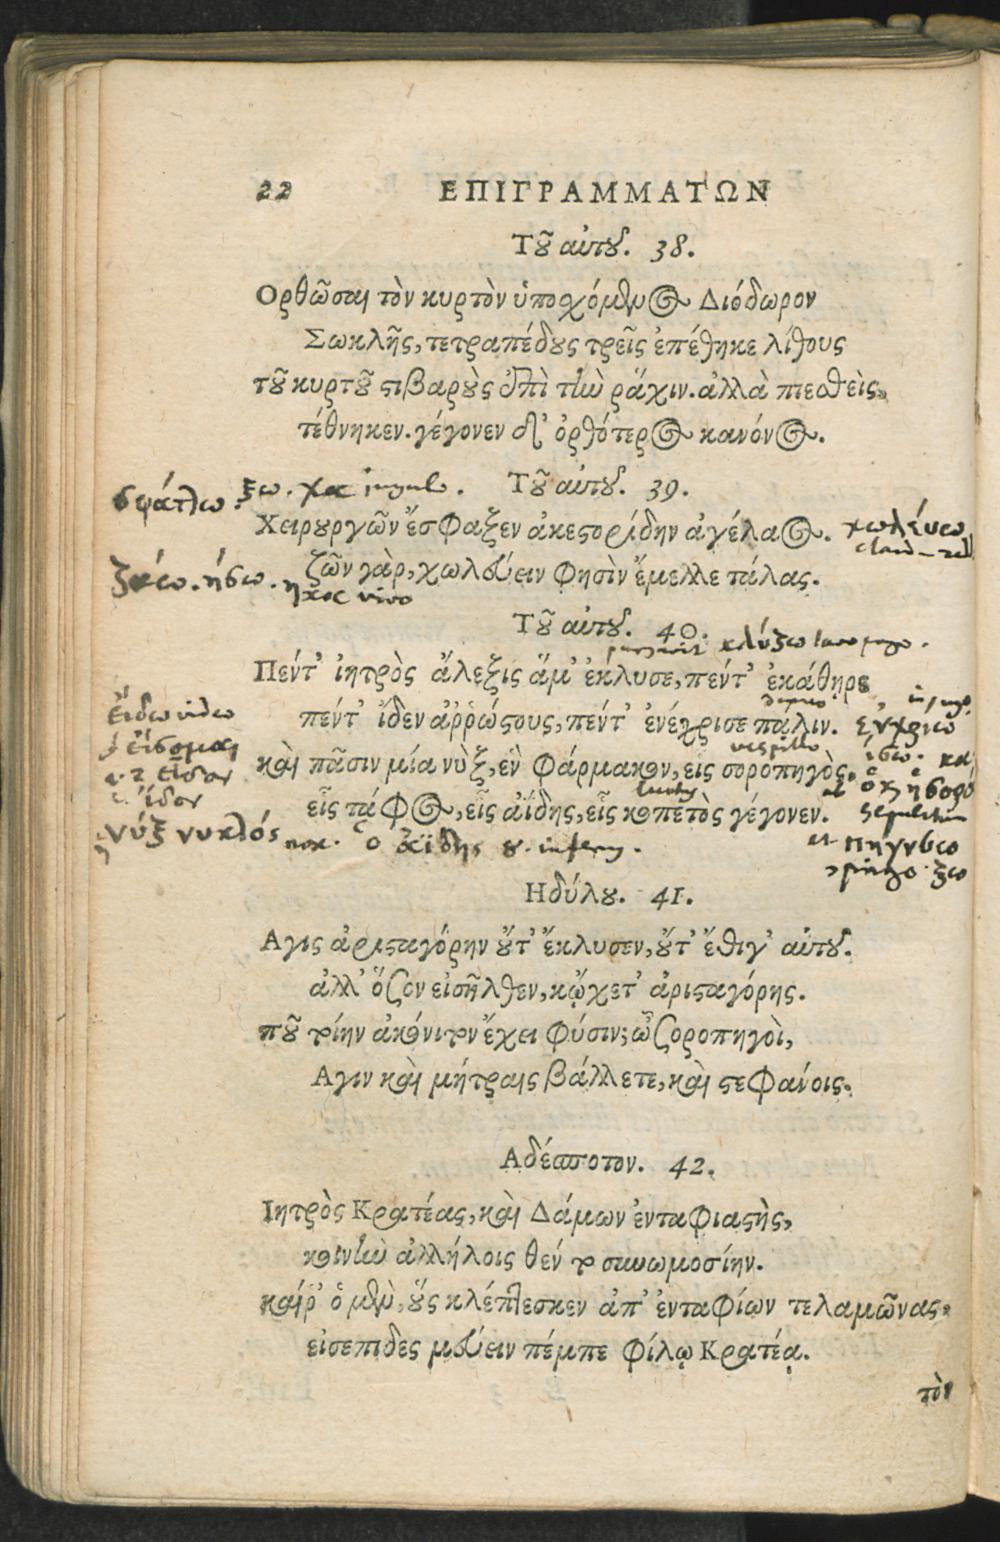 22 ΕΠΙΓΡΑΜΜΑΤΩΝ
Τοῦ αὐτοῦ. 38.
Ορθῶσαι τὸν κυρτὸν ὑποσχόμενος Διόδωρον
Σωκλῆς, τετραπέδους τρεῖς ἐπέθηκε λίθους
τοῦ κυρτοῦ στιβαροὺς ἐπὶ τὴν ῥάχιν. ἀλλὰ πιεσθεὶς
τέθνηκεν. γέγονεν δ' ὀρθότερος κανόνος.
σφάττω. ξω. χα iugulo.
Τοῦ αὐτοῦ. 39.
Χειρουργῶν ἔσφαξεν ἀκεστορίδην ἀγέλαος. χωλεύω
ζῶν γὰρ, χωλεύειν φησὶν ἔμελλε τάλας.
ζάω. ήσω. ηκα vivo
Τοῦ αὐτοῦ. 40.
κλύζω lavo purgo.
Πέντ' ἰητρὸς ἄλεξις ἅμ' ἐκλυσε, πέντ' ἐκάθηρε
πέντ' ἴδεν ἀῤῥώστους, πέντ' ἐνέχρισε πάλιν.
εἴδω video
εἴσομαι
εἶδον
ἴδον
vespillo
καὶ πᾶσιν μία νὺξ, ἓν φάρμακον, εἷς σοροπηγὸς,
luctus
εἷς τάφος, εἷς ἀΐδης, εἷς κοπετὸς γέγονεν.
νύξ νυκτός nox. ὁ ἀΐδης ου. infern.
πηγνύω
Ηδύλου. 41.
Αγις ἀρισταγόρην οὔτ' ἔκλυσεν, οὔτ' ἔθιγ' αὐτοῦ.
ἀλλ' ὅσον εἰσῆλθεν, κᾤχετ' ἀρισταγόρης.
ποῦ τοίην ἀκόνιτον ἔχει φύσιν; ὦ ζοροπηγοὶ,
Αγιν καὶ μήτραις βάλλετε, καὶ στεφάνοις.
Αδέσποτον. 42.
Ιητρὸς Κρατέας, καὶ Δάμων ἐνταφιαστὴς,
κοινὴν ἀλλήλοις θέντο συνωμοσίην.
καί ῥ' ὁ μὲν, οὓς κλέπτεσκεν ἀπ' ἐνταφίων τελαμῶνας,
εἰσεπιδεσμεύειν πέμπε φίλῳ Κρατέᾳ.
τὸν